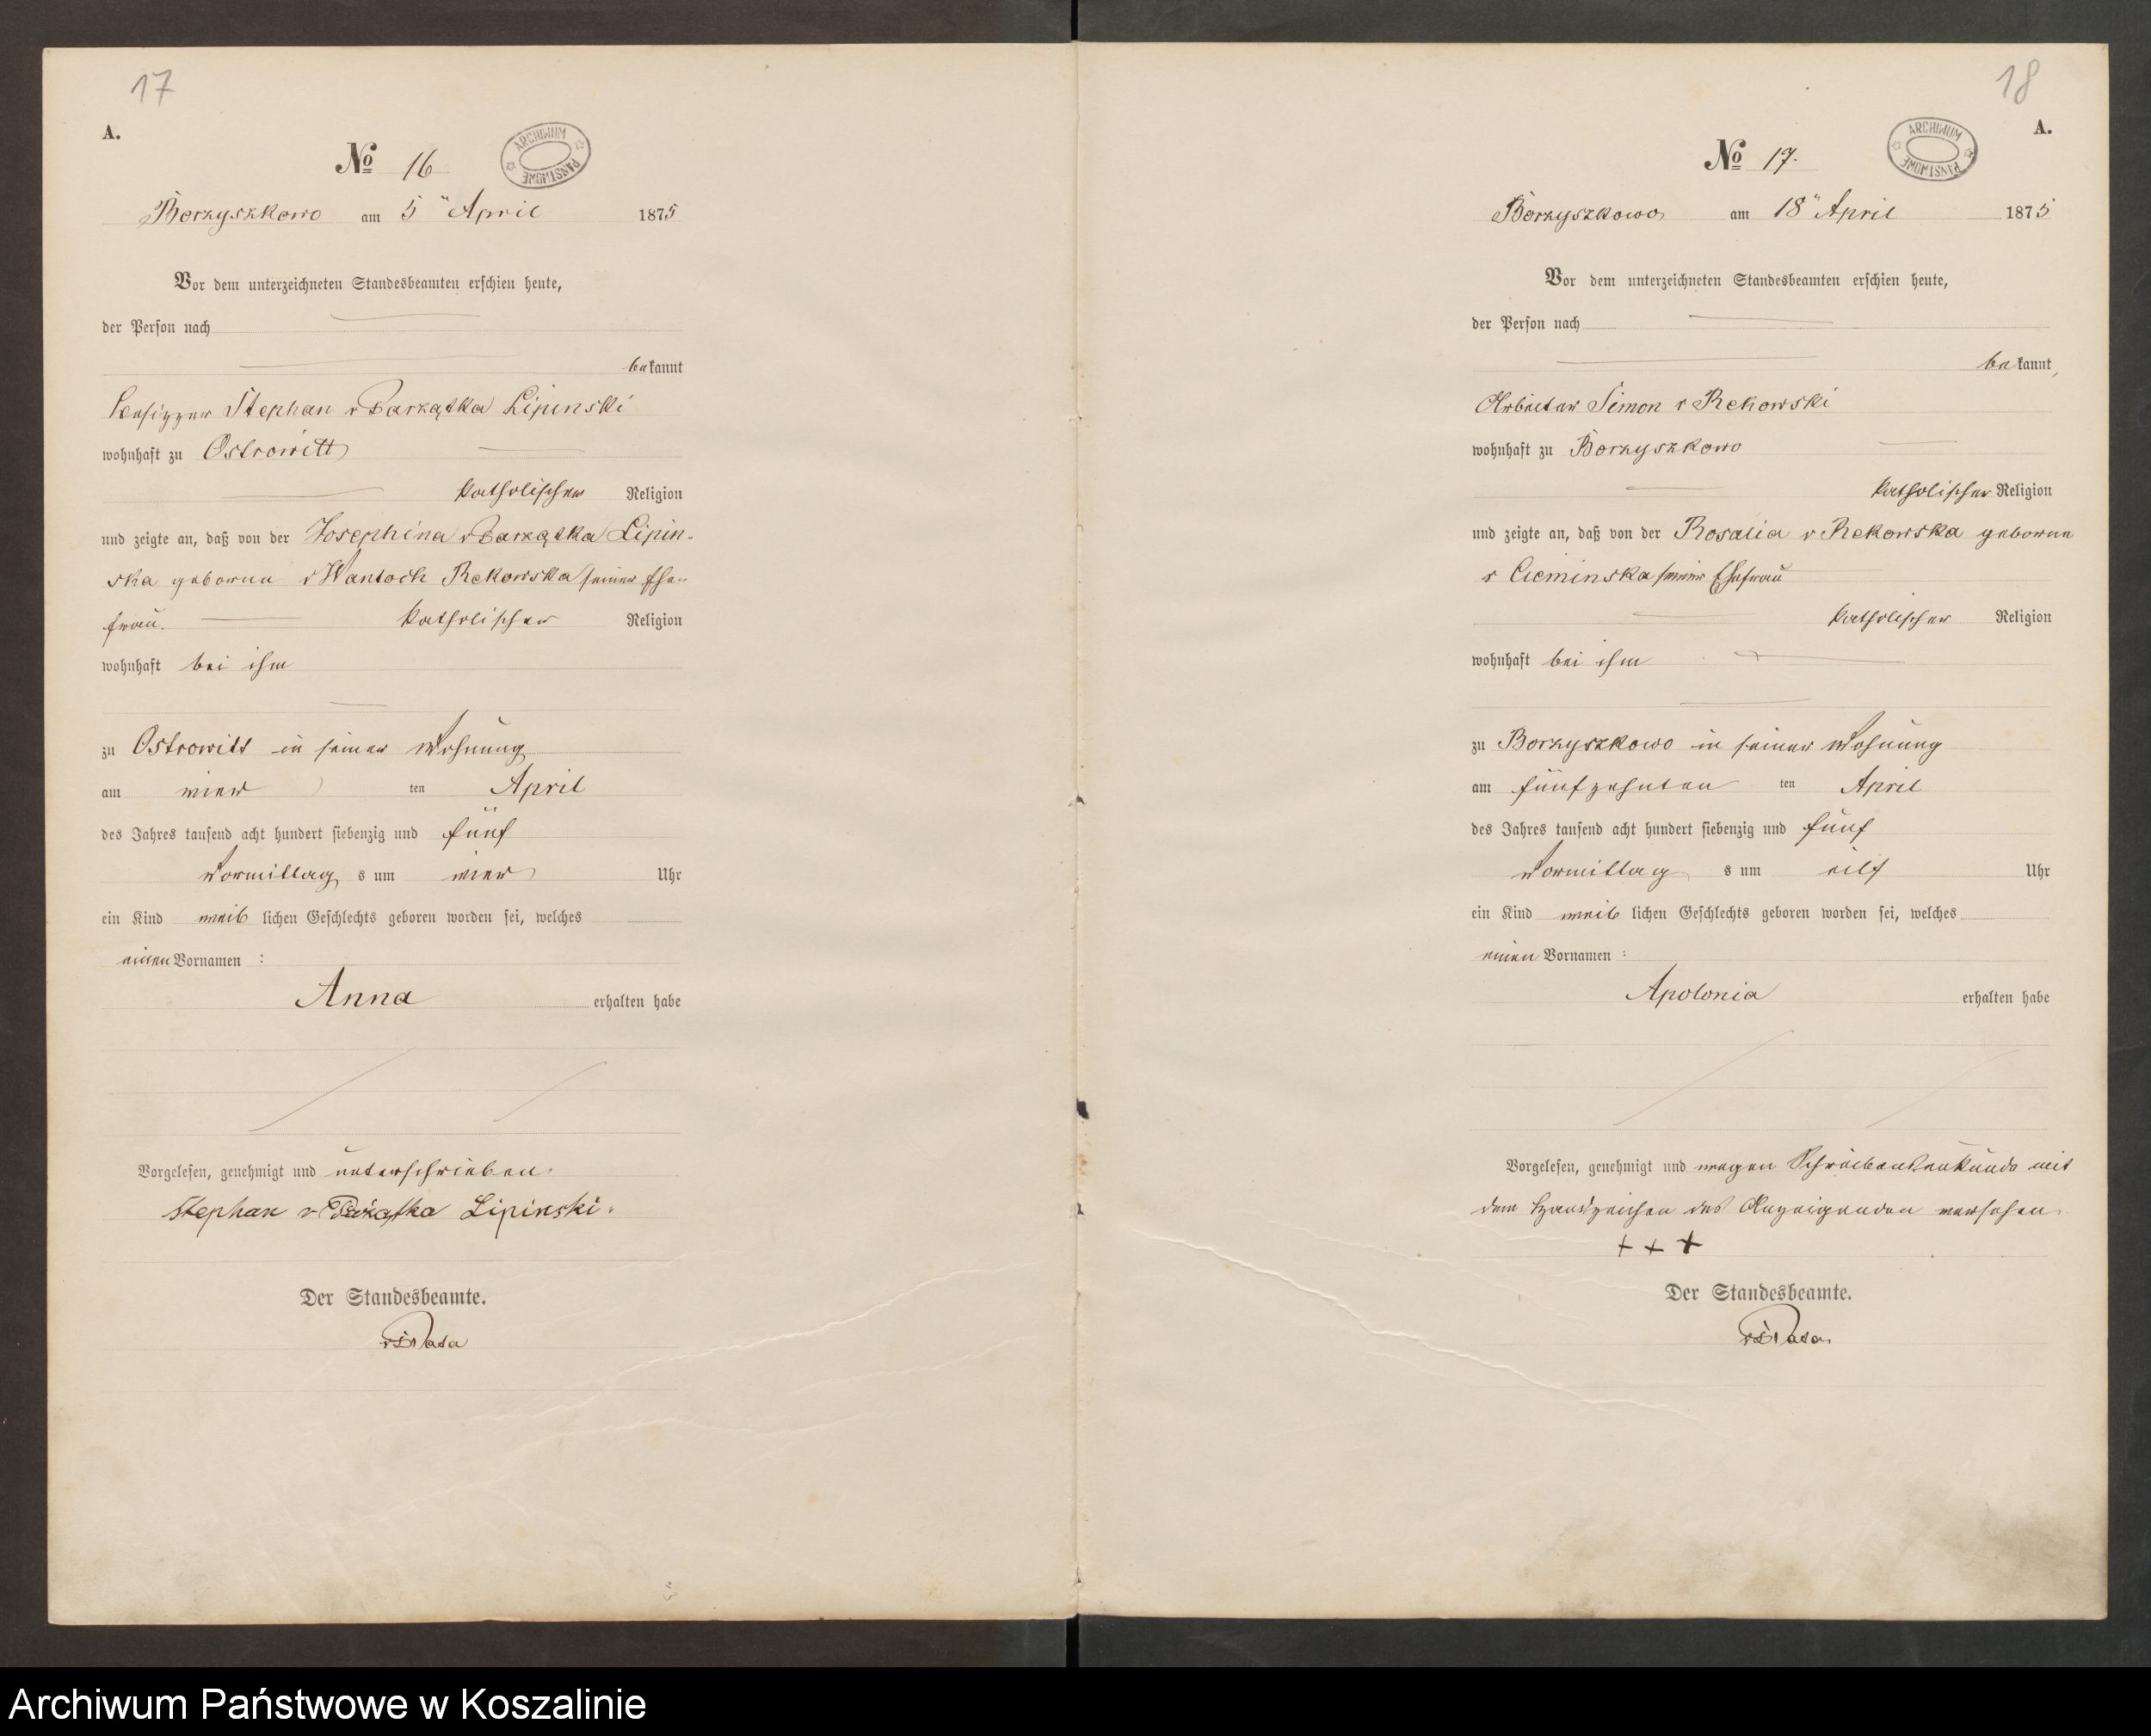 17
A.
No 16
ARCHIWUM PAŃSTWOWE
Borzyszkowo am 5" April 1875
Vor dem unterzeichneten Standesbeamten erschien heute,
der Person nach
bekannt
Besitzer Stephan v Parzątka Lipinski
wohnhaft zu Ostrowitt
katholischer Religion
und zeigte an, daß von der Josephina v Parzątka Lipin-
ska geborne v Wantoch Rekowska seiner Ehe-
frau. katholischer Religion
wohnhaft bei ihm
zu Ostrowitt in seiner Wohnung
am vier ten April
des Jahres tausend acht hundert siebenzig und fünf
Vormittag s um vier Uhr
ein Kind weib lichen Geschlechts geboren worden sei, welches
einen Vornamen :
Anna erhalten habe
Vorgelesen, genehmigt und unterschrieben.
Stephan v Lipinski.
Der Standesbeamte.
18
A.
No 17.
ARCHIWUM PAŃSTWOWE
Borzyszkowo am 18" April 1875
Vor dem unterzeichneten Standesbeamten erschien heute,
der Person nach
bekannt,
Arbeiter Simon v Rekowski
wohnhaft zu Borzyszkowo
katholischer Religion
und zeigte an, daß von der Rosalia v Rekowska geborne
v Cieminska seiner Ehefrau
katholischer Religion
wohnhaft bei ihm
zu Borzyszkowo in seiner Wohnung
am fünfzehnten ten April
des Jahres tausend acht hundert siebenzig und fünf
Vormittag s um eilf Uhr
ein Kind weib lichen Geschlechts geboren worden sei, welches
einen Vornamen :
Apolonia erhalten habe
Vorgelesen, genehmigt und wegen Schreibensunkunde mit
dem Handzeichen des Anzeigenden versehen.
+ + +
Der Standesbeamte.
Archiwum Państwowe w Koszalinie